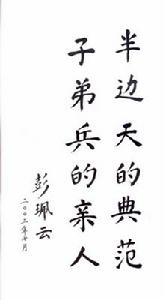 半边天的典范
子弟兵的亲人
彭珮云
二〇〇二年七月